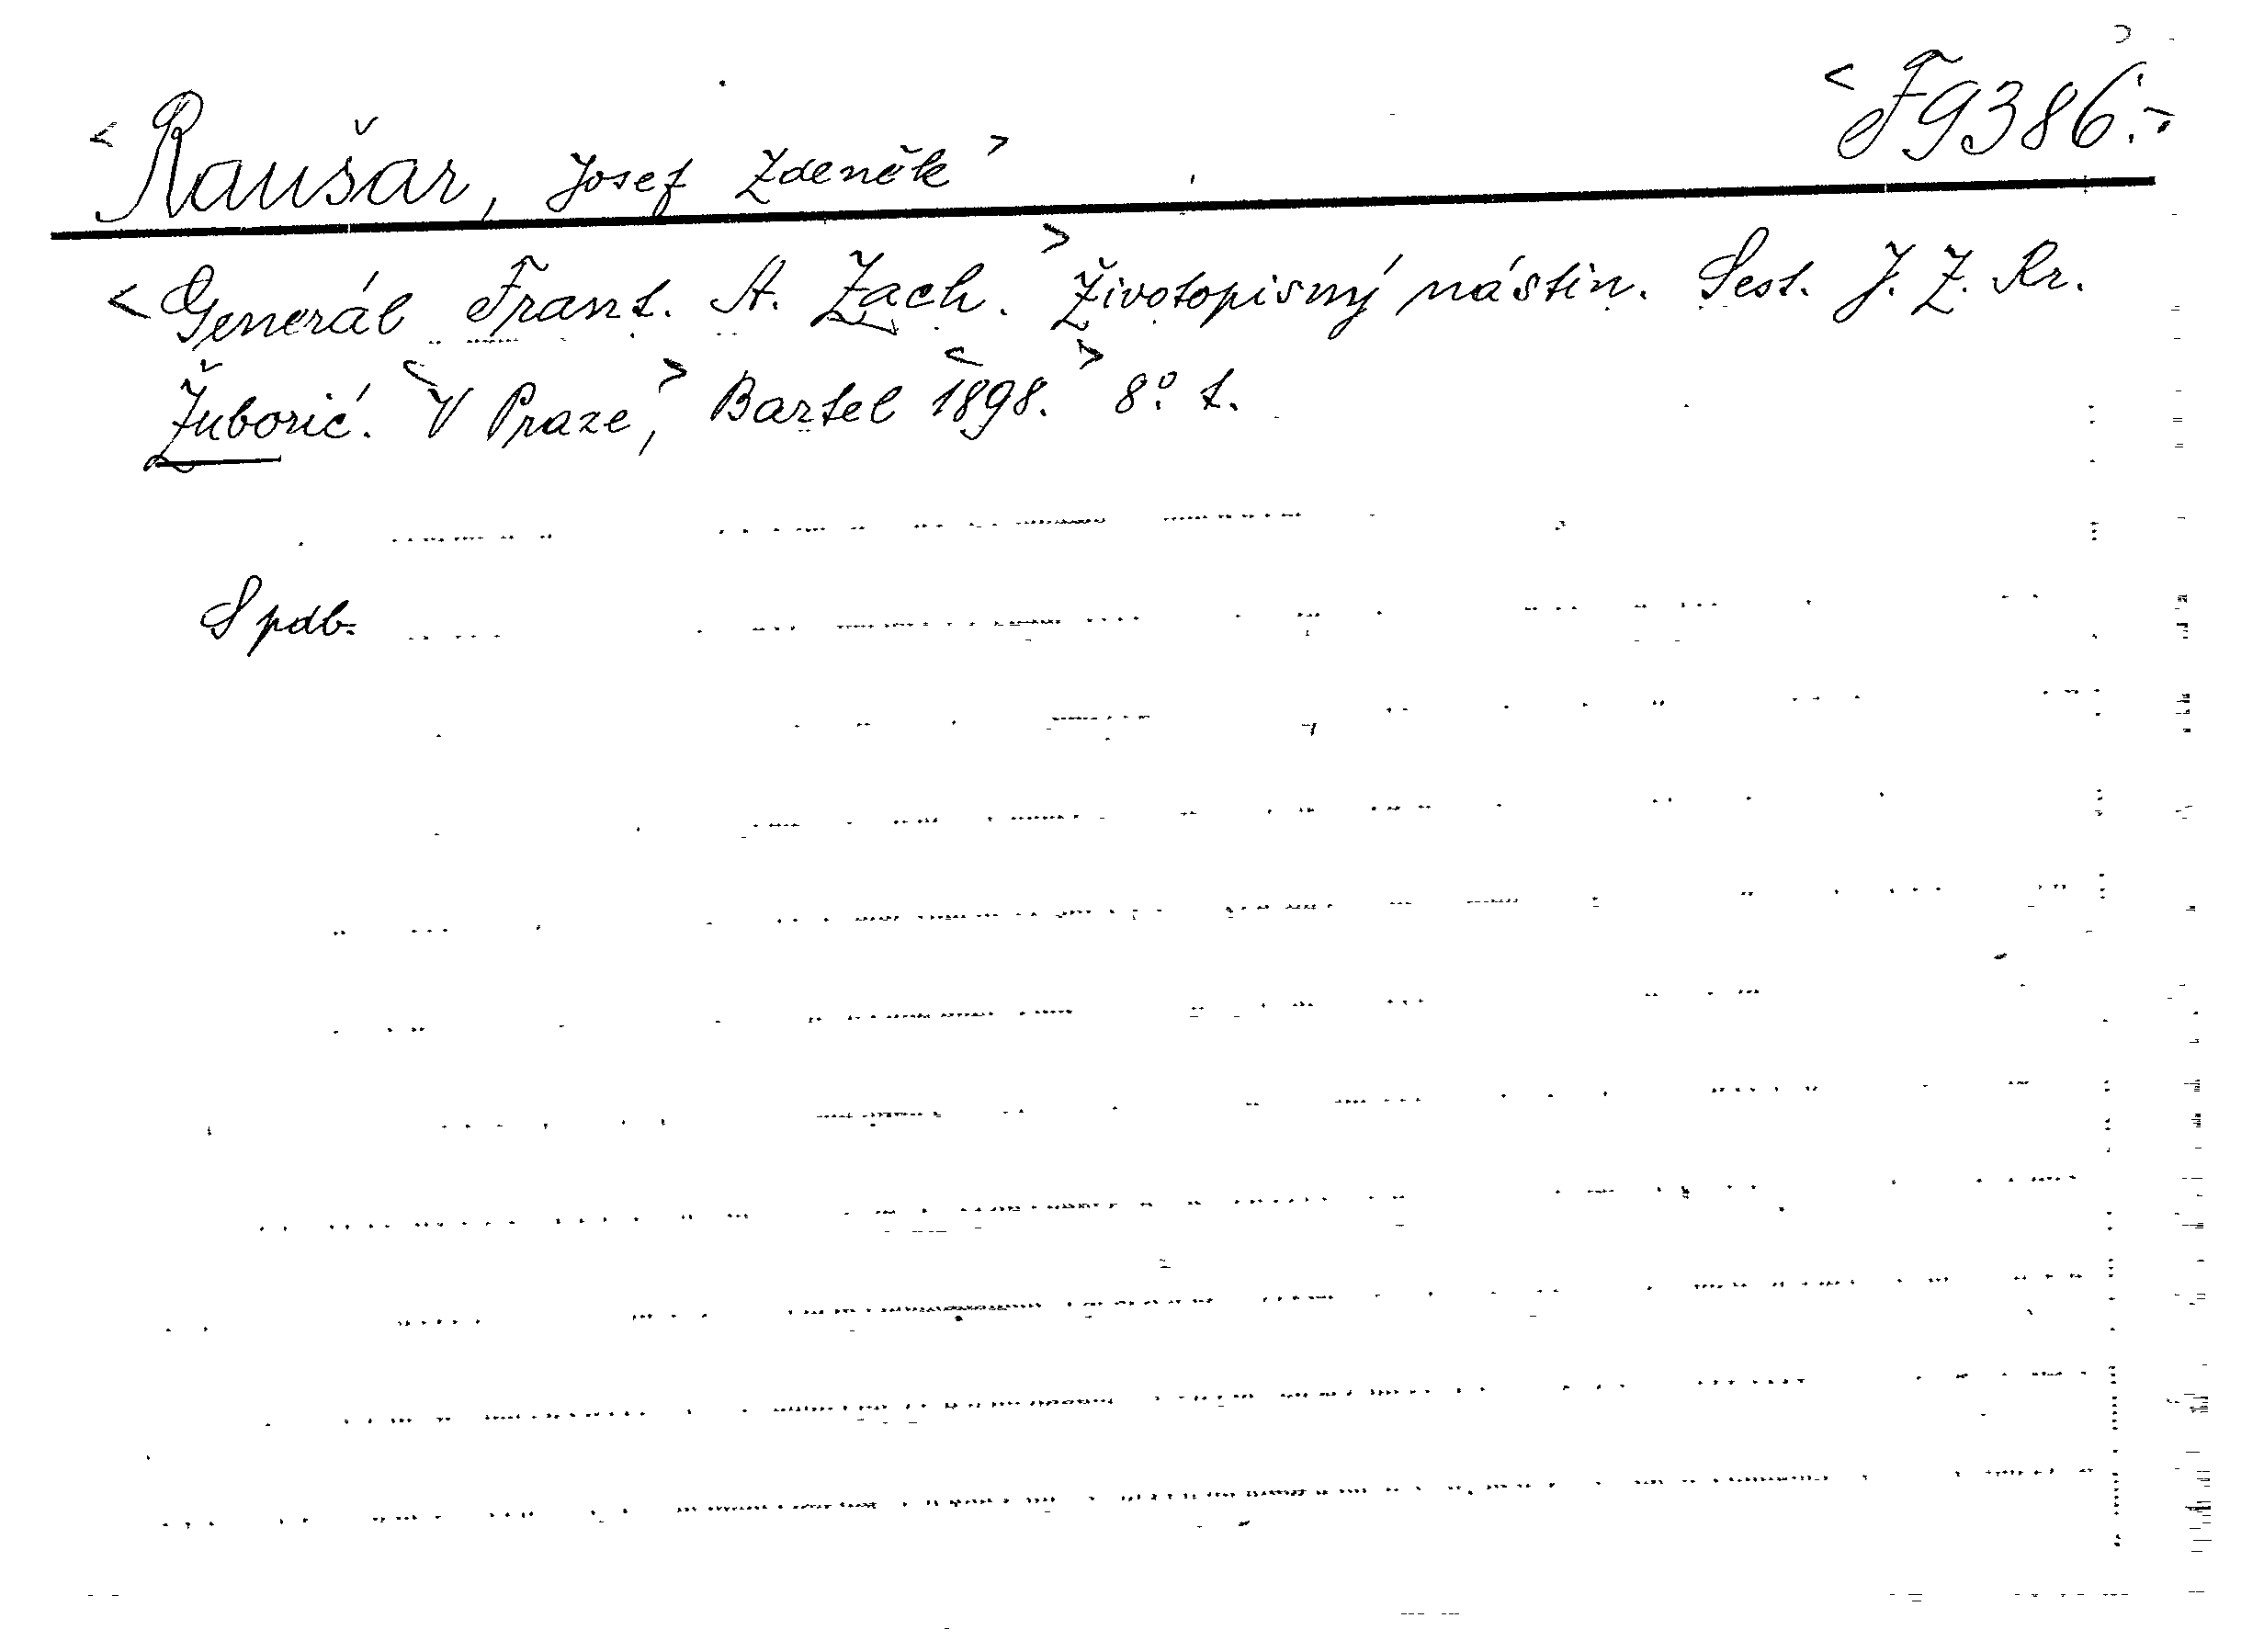 <F9386.->
<Raušar, Josef Zdeněk>
<Generál Frant. A. Zach.> Životopisný nástin. Sest. J. Z. Rr.
Žuborić. <V Praze,> Bartel <1898.> 8° t.
Spdb.